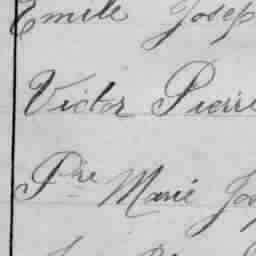 Emile Josep
Victor Pierre
Pre Marie Jos